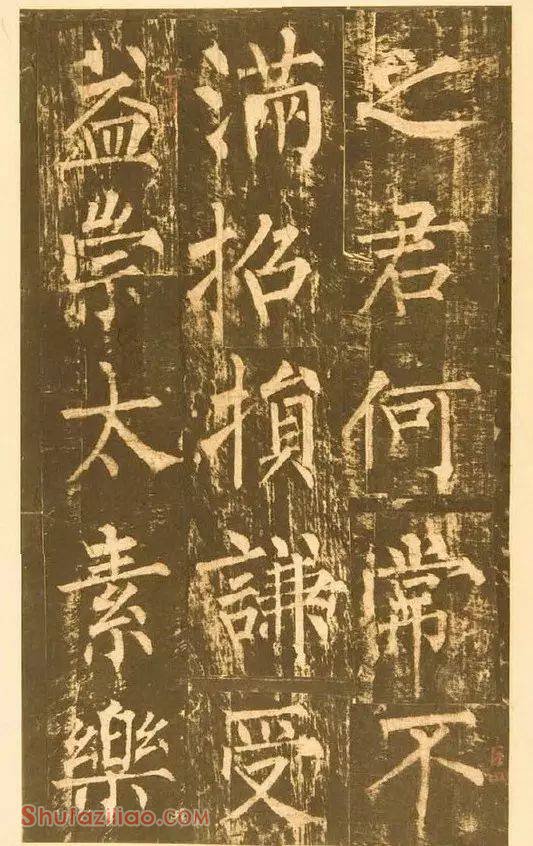 之君何常不
滿招損謙受
益崇太素樂
Shufaziliao.com